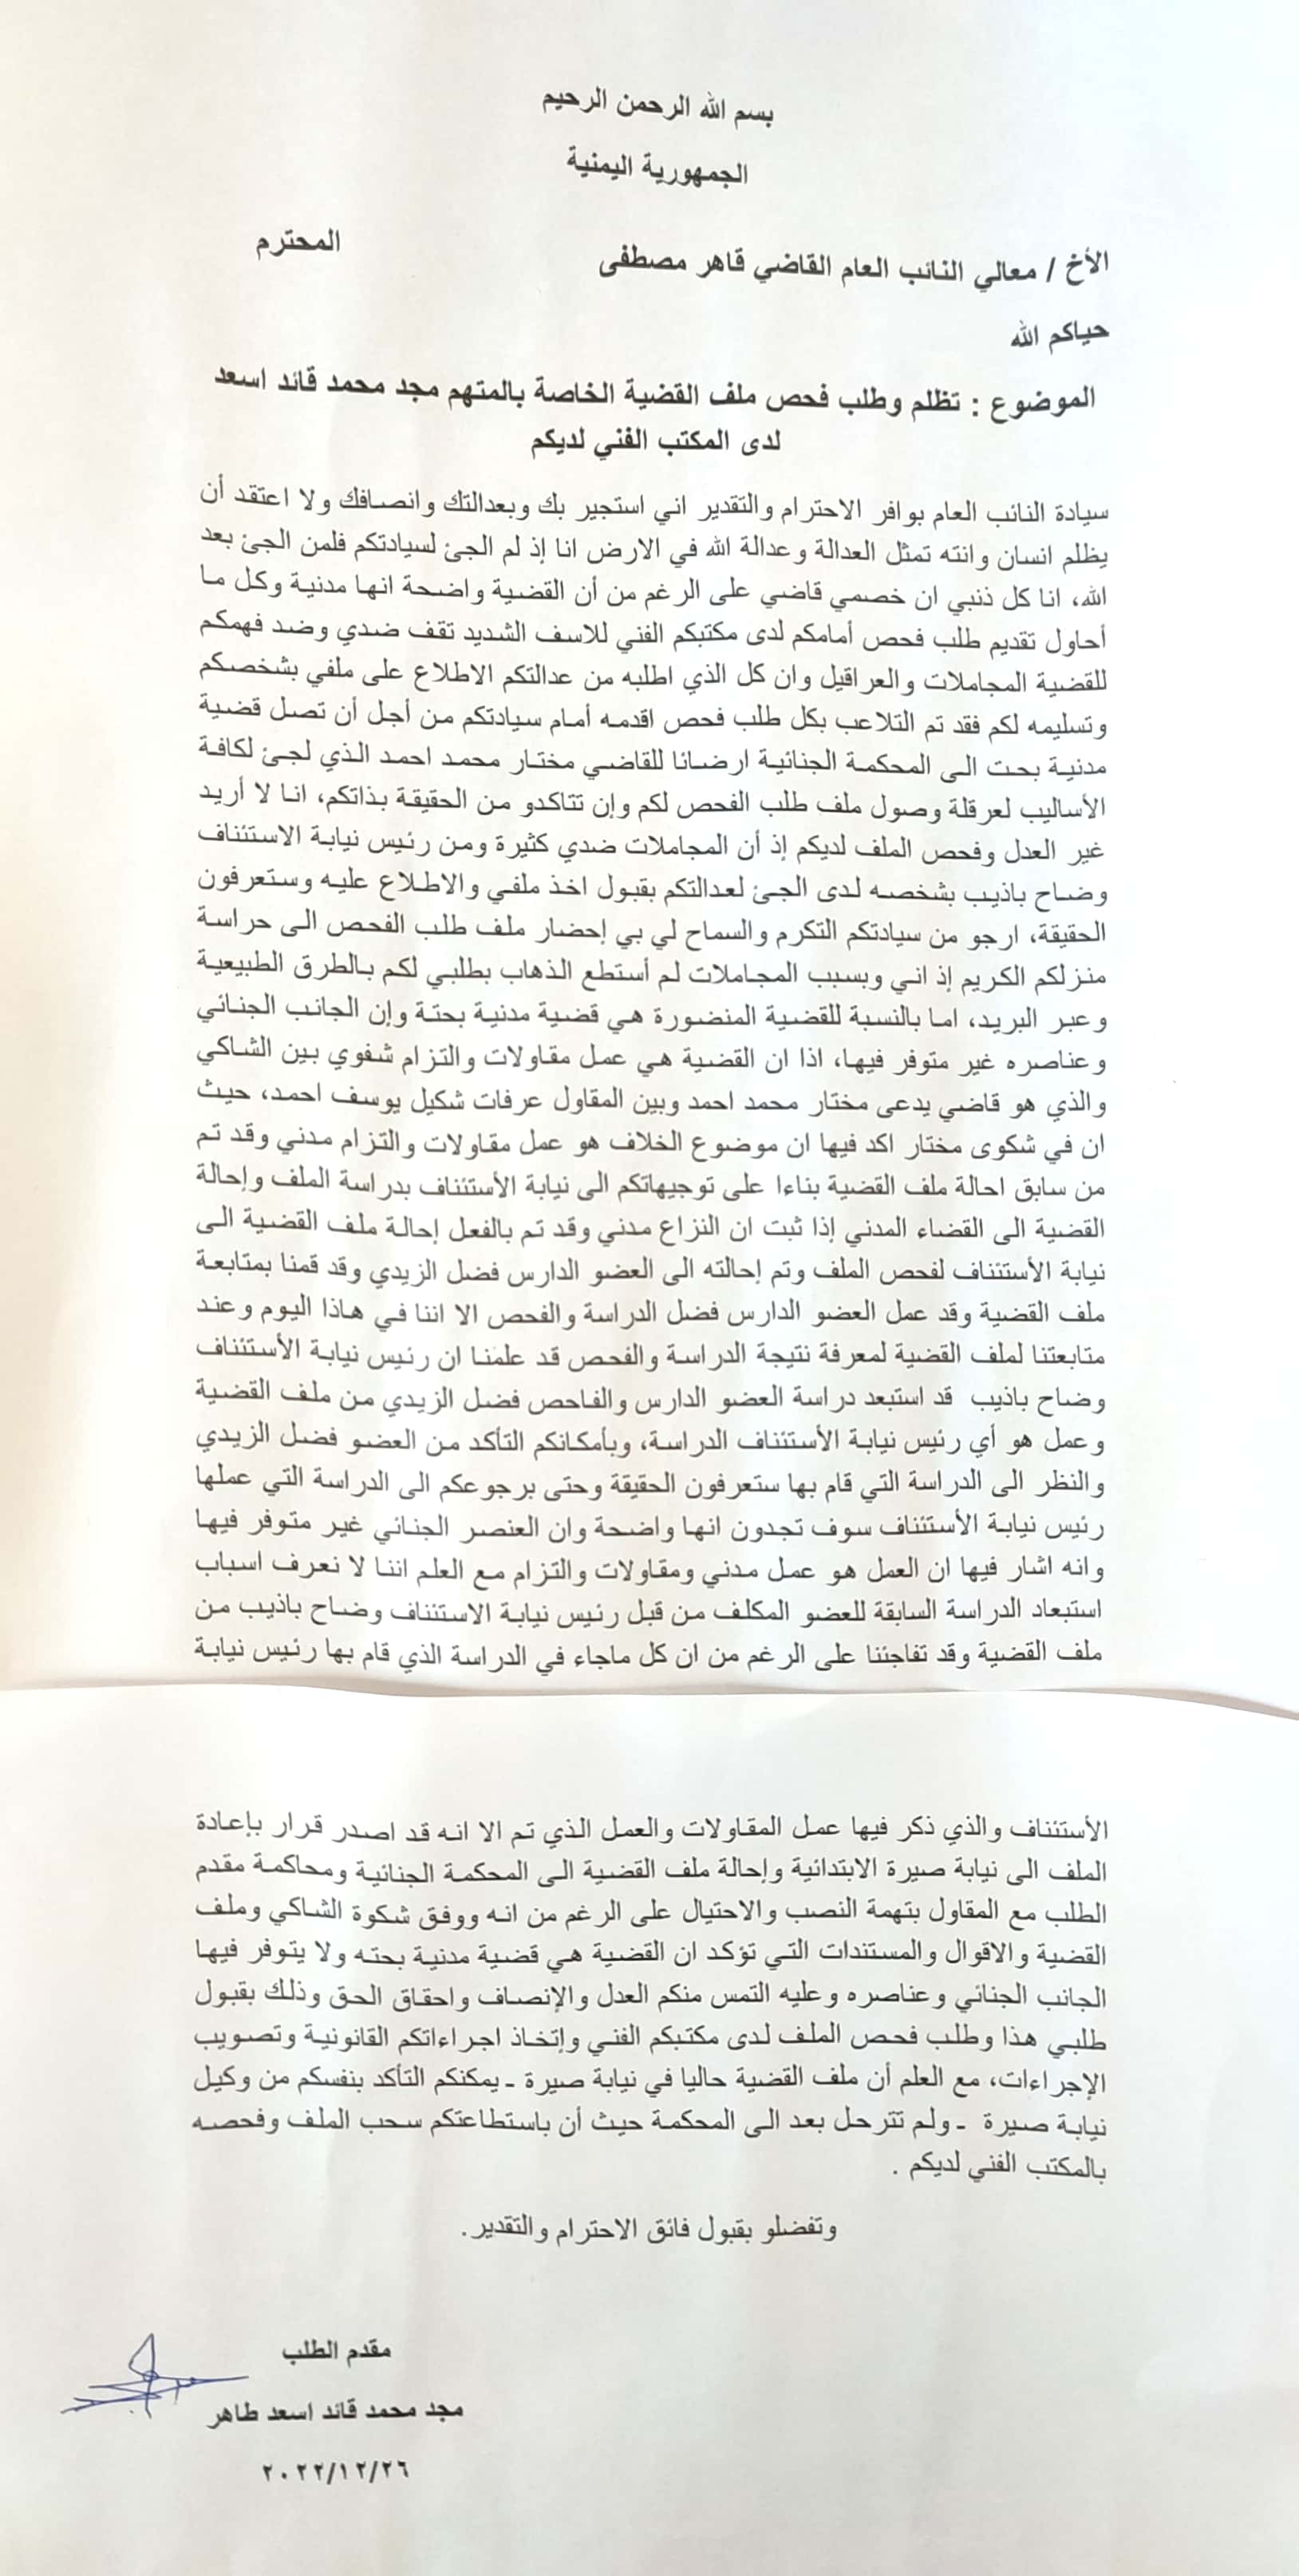 بسم الله الرحمن الرحيم
الجمهورية اليمنية
الأخ / معالي النائب العام القاضي قاهر مصطفى المحترم
حياكم الله
الموضوع : تظلم وطلب فحص ملف القضية الخاصة بالمتهم مجد محمد قائد اسعد
لدى المكتب الفني لديكم
سيادة النائب العام بوافر الاحترام والتقدير اني استجير بك وبعدالتك وانصافك ولا اعتقد أن
يظلم انسان وانته تمثل العدالة وعدالة الله في الارض انا إذ لم الجئ لسيادتكم فلمن الجئ بعد
الله، انا كل ذنبي ان خصمي قاضي على الرغم من أن القضية واضحة انها مدنية وكل ما
أحاول تقديم طلب فحص أمامكم لدى مكتبكم الفني للاسف الشديد تقف ضدي وضد فهمكم
للقضية المجاملات والعراقيل وان كل الذي اطلبه من عدالتكم الاطلاع على ملفي بشخصكم
وتسليمه لكم فقد تم التلاعب بكل طلب فحص اقدمه أمام سيادتكم من أجل أن تصل قضية
مدنية بحت الى المحكمة الجنائية ارضائا للقاضي مختار محمد احمد الذي لجئ لكافة
الأساليب لعرقلة وصول ملف طلب الفحص لكم وإن تتاكدو من الحقيقة بذاتكم، انا لا أريد
غير العدل وفحص الملف لديكم إذ أن المجاملات ضدي كثيرة ومن رئيس نيابة الاستئناف
وضاح باذيب بشخصه لدى الجئ لعدالتكم بقبول اخذ ملفي والاطلاع عليه وستعرفون
الحقيقة، ارجو من سيادتكم التكرم والسماح لي بي إحضار ملف طلب الفحص الى حراسة
منزلكم الكريم إذ اني وبسبب المجاملات لم أستطع الذهاب بطلبي لكم بالطرق الطبيعية
وعبر البريد، اما بالنسبة للقضية المنضورة هي قضية مدنية بحتة وإن الجانب الجنائي
وعناصره غير متوفر فيها، اذا ان القضية هي عمل مقاولات والتزام شفوي بين الشاكي
والذي هو قاضي يدعى مختار محمد احمد وبين المقاول عرفات شكيل يوسف احمد، حيث
ان في شكوى مختار اكد فيها ان موضوع الخلاف هو عمل مقاولات والتزام مدني وقد تم
من سابق احالة ملف القضية بناءا على توجيهاتكم الى نيابة الأستئناف بدراسة الملف وإحالة
القضية الى القضاء المدني إذا ثبت ان النزاع مدني وقد تم بالفعل إحالة ملف القضية الى
نيابة الأستئناف لفحص الملف وتم إحالته الى العضو الدارس فضل الزيدي وقد قمنا بمتابعة
ملف القضية وقد عمل العضو الدارس فضل الدراسة والفحص الا اننا في هاذا اليوم وعند
متابعتنا لملف القضية لمعرفة نتيجة الدراسة والفحص قد علمنا ان رئيس نيابة الأستئناف
وضاح باذيب قد استبعد دراسة العضو الدارس والفاحص فضل الزيدي من ملف القضية
وعمل هو أي رئيس نيابة الأستئناف الدراسة، وبأمكانكم التأكد من العضو فضل الزيدي
والنظر الى الدراسة التي قام بها ستعرفون الحقيقة وحتى برجوعكم الى الدراسة التي عملها
رئيس نيابة الأستئناف سوف تجدون انها واضحة وان العنصر الجنائي غير متوفر فيها
وانه اشار فيها ان العمل هو عمل مدني ومقاولات والتزام مع العلم اننا لا نعرف اسباب
استبعاد الدراسة السابقة للعضو المكلف من قبل رئيس نيابة الاستئناف وضاح باذيب من
ملف القضية وقد تفاجئنا على الرغم من ان كل ماجاء في الدراسة الذي قام بها رئيس نيابة
الأستئناف والذي ذكر فيها عمل المقاولات والعمل الذي تم الا انه قد اصدر قرار بإعادة
الملف الى نيابة صيرة الابتدائية وإحالة ملف القضية الى المحكمة الجنائية ومحاكمة مقدم
الطلب مع المقاول بتهمة النصب والاحتيال على الرغم من انه ووفق شكوة الشاكي وملف
القضية والاقوال والمستندات التي تؤكد ان القضية هي قضية مدنية بحته ولا يتوفر فيها
الجانب الجنائي وعناصره وعليه التمس منكم العدل والإنصاف واحقاق الحق وذلك بقبول
طلبي هذا وطلب فحص الملف لدى مكتبكم الفني وإتخاذ اجراءاتكم القانونية وتصويب
الإجراءات، مع العلم أن ملف القضية حاليا في نيابة صيرة ـ يمكنكم التأكد بنفسكم من وكيل
نيابة صيرة ـ ولم تترحل بعد الى المحكمة حيث أن باستطاعتكم سحب الملف وفحصه
بالمكتب الفني لديكم .
وتفضلو بقبول فائق الاحترام والتقدير.
مقدم الطلب
مجد محمد قائد اسعد طاهر
٢٠٢٢/١٢/٢٦